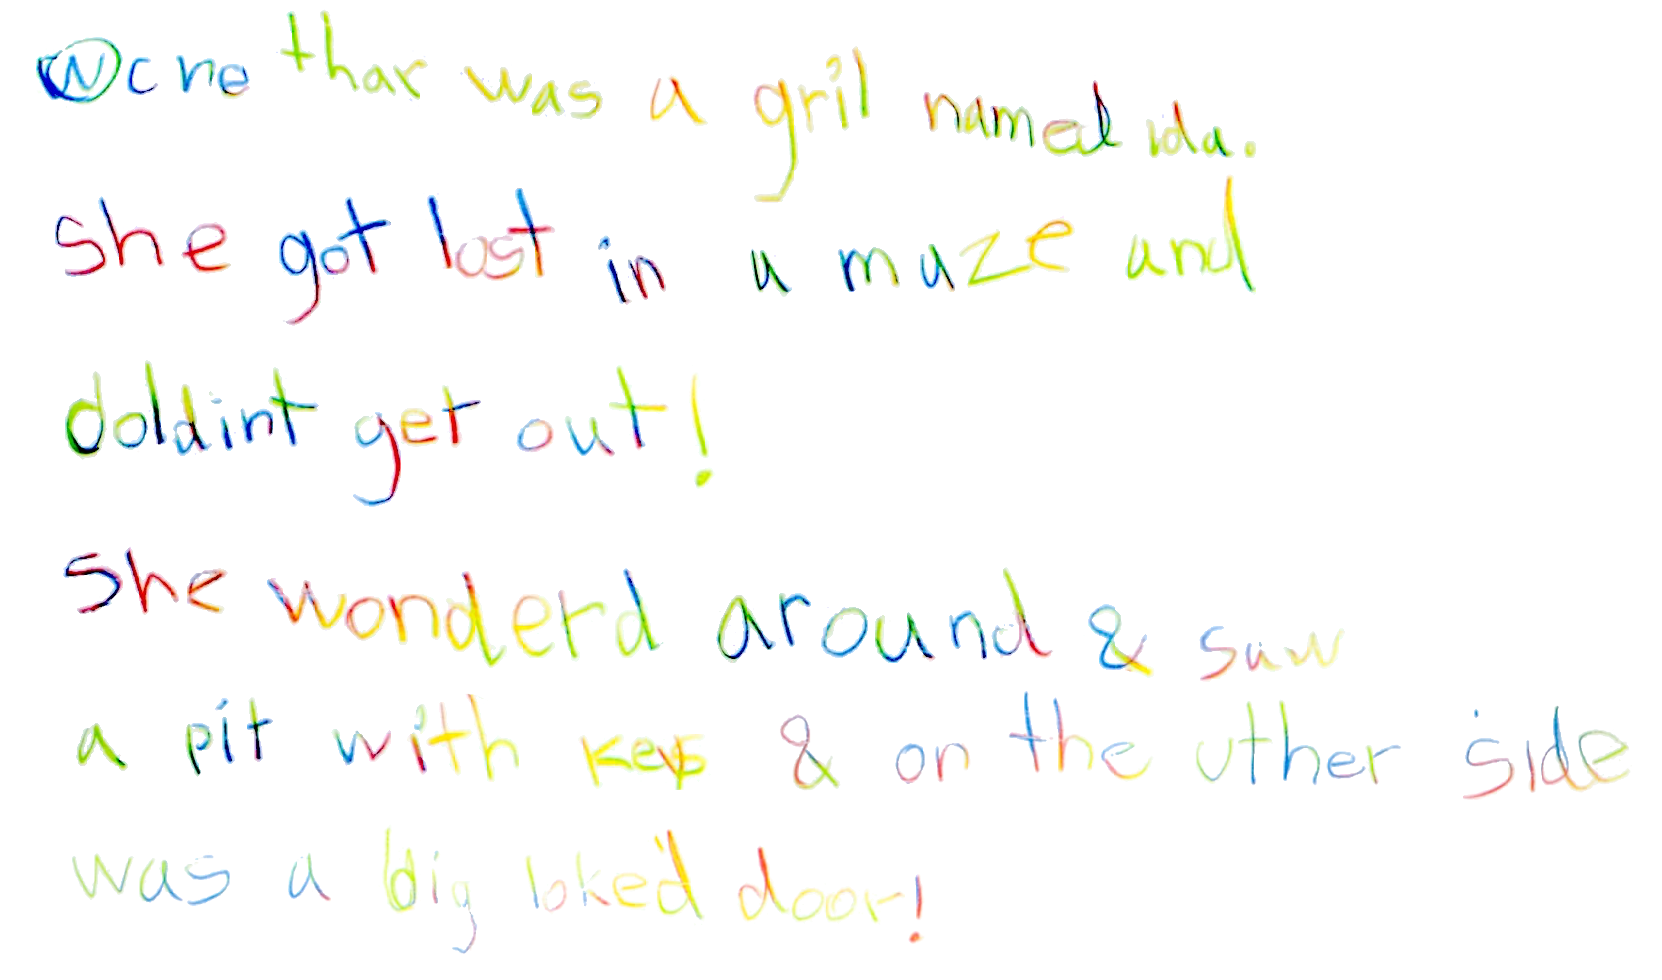 Wcne thar was a gril named ida.
She got lost in a maze and
doldint get out!
She wonderd around & saw
a pit with keys & on the uther side
was a big loked door!